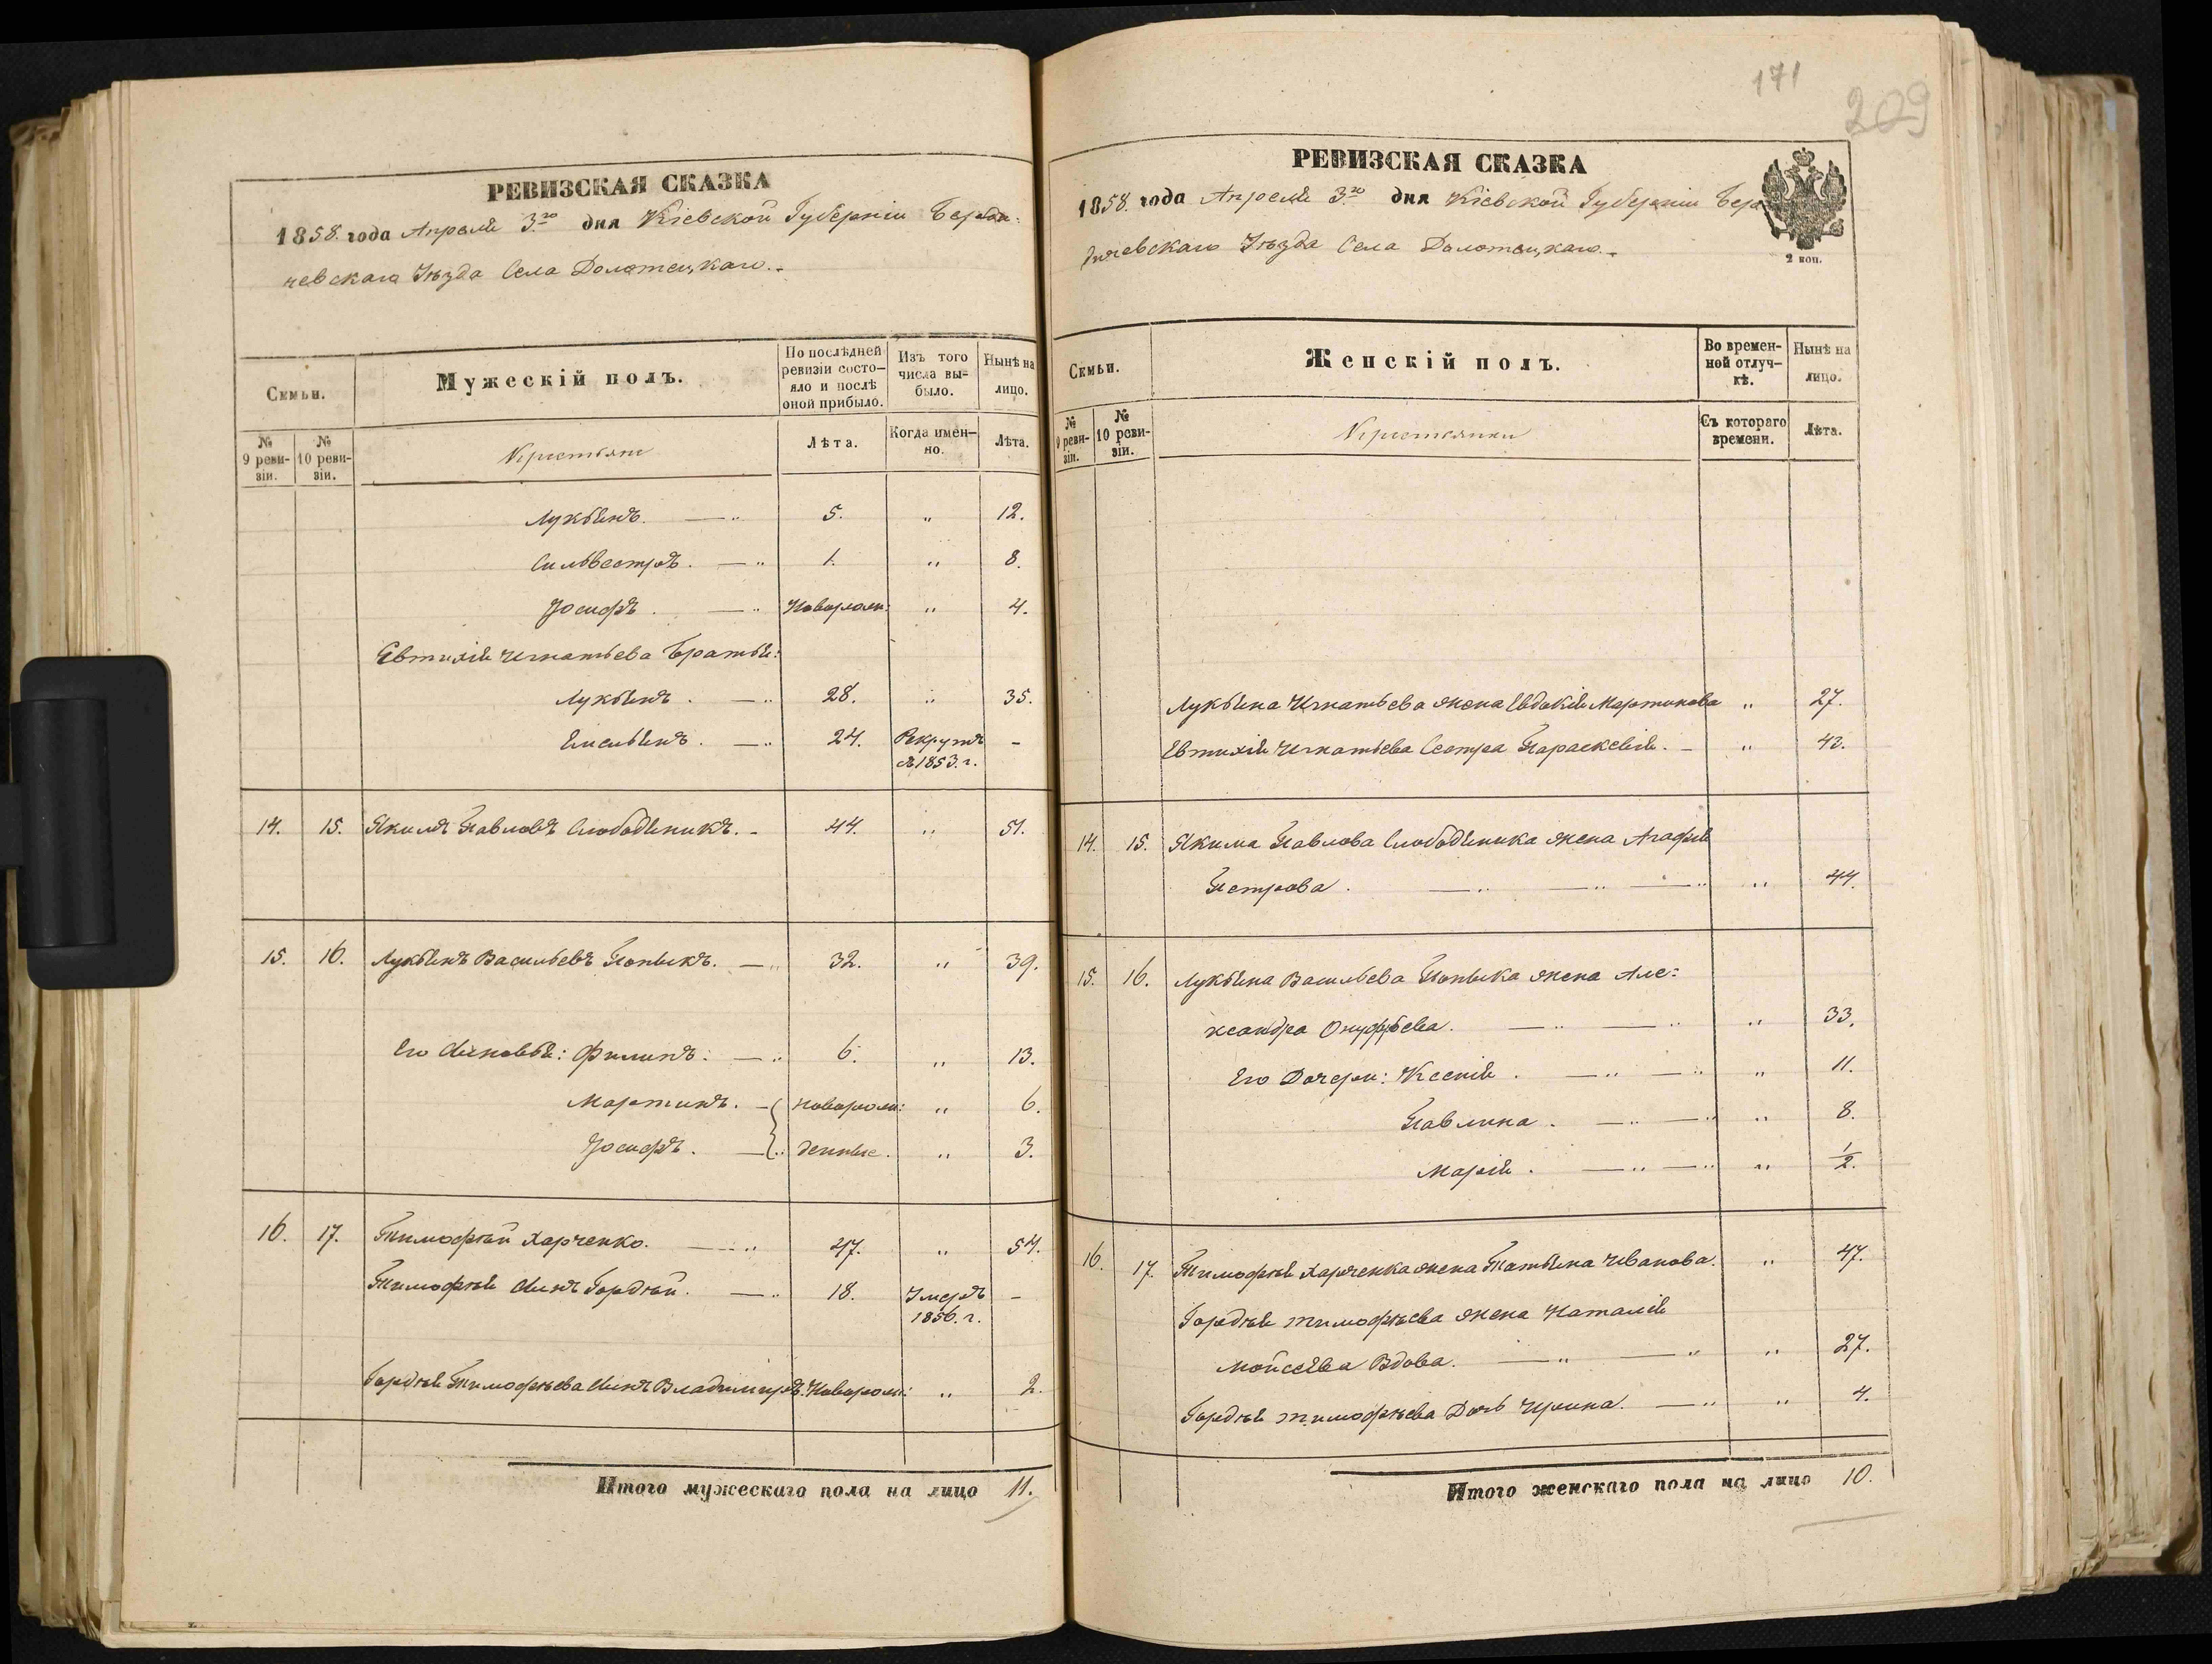 РЕВИЗСКАЯ СКАЗКА
1858. года Апреля 3.го дня Кіевской Губерніи Берди-
чевскаго Уѣзда Села Долотецкаго.
Семьи.
Мужескій полъ.
По послѣдней ревизіи состо-
яло и послѣ оной прибыло.
Изъ того числа вы-
было.
Нынѣ на лицо.
№ 9 реви-
зіи.
№ 10 реви-
зіи.
Крестьяне
Лѣта.
Когда имен-
но.
Лѣта.
Лукьянъ. — „ 5. „ 12.
Сильвестръ. — „ 1. „ 8.
Іосифъ. — „ Наворожд: „ 4.
Евтихія Игнатьева Братья:
Лукьянъ. — „ 28. „ 35.
Емельянъ. — „ 24. Рекрутъ —
въ 1853. г.
14. 15. Якимъ Павловъ Слободяникъ. — 44. „ 51.
15. 16. Лукьянъ Васильевъ Попыкъ. — „ 32. „ 39.
Его Сыновья: Филипъ: — „ 6. „ 13.
Мартинъ. — Наворож: „ 6.
Іосифъ. — „ денные. „ 3.
16. 17. Тимофѣй Харченко. — „ 47. „ 54.
Тимофѣя Сынъ Гордѣй. — „ 18. Умеръ —
1856. г.
Гордѣя Тимофѣева Сынъ Владимиръ. Наворож: „ 2.
Итого мужескаго пола на лицо 11.
171
209
РЕВИЗСКАЯ СКАЗКА
1858. года Апреля 3.го дня Кіевской Губерніи Бер
дичевскаго Уѣзда Села Долотецкаго.
2 коп.
Семьи.
Женскій полъ.
Во времен-
ной отлуч-
кѣ.
Нынѣ на лицо.
№ 9 реви-
зіи.
№ 10 реви-
зіи.
Крестьянки
Съ котораго времени.
Лѣта.
Лукьяна Игнатьева жена Евдокія Мартинова „ 27.
Евтихія Игнатьева Сестра Параскевія. — „ 43.
14. 15. Якима Павлова Слободяника жена Агафія
Петрова. — „ — „ — „ „ 44.
15. 16. Лукьяна Васильева Попыка жена Але-
ксандра Онуфрьева. — „ — „ „ 33.
Его Дочери: Ксенія. — „ — „ „ 11.
Павлина. — „ — „ „ 8.
Марія. — „ — „ „ 1/2.
16. 17. Тимофѣя Харченка жена Татьяна Иванова. „ 47.
Гордѣя тимофѣева жена Наталія
Мойсеева Вдова. — „ — „ „ 27.
Гордѣя тимофѣева Дочь Ирина. — „ „ 4.
Итого женскаго пола на лицо 10.